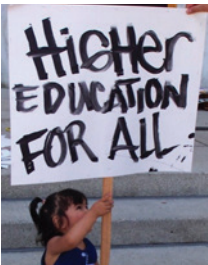 HiGHer
EDUCATION
FOR ALL.